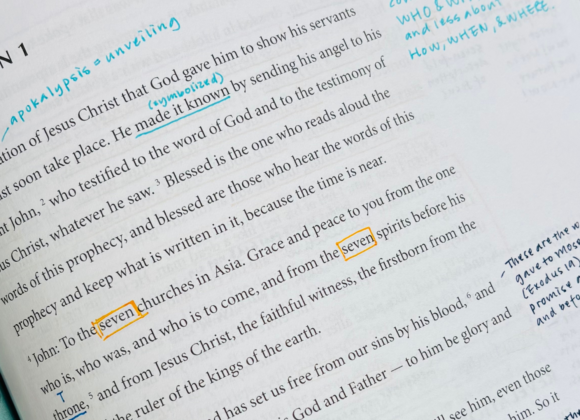 N 1
apokalypsis = unveiling
WHO & W
and less about
HOW, WHEN, & WHERE.
ation of Jesus Christ that God gave him to show his servants
(symbolized)
st soon take place. He made it known by sending his angel to his
nt John, 2 who testified to the word of God and to the testimony of
us Christ, whatever he saw. 3 Blessed is the one who reads aloud the
words of this prophecy, and blessed are those who hear the words of this
prophecy and keep what is written in it, because the time is near.
4 John: To the seven churches in Asia. Grace and peace to you from the one
who is, who was, and who is to come, and from the seven spirits before his
throne, 5 and from Jesus Christ, the faithful witness, the firstborn from the
the ruler of the kings of the earth.
d has set us free from our sins by his blood, 6 and
s God and Father — to him be glory and
ll see him, even those
him. So it
These are the w
gave to
(Exodus 19)
promise a
and bef